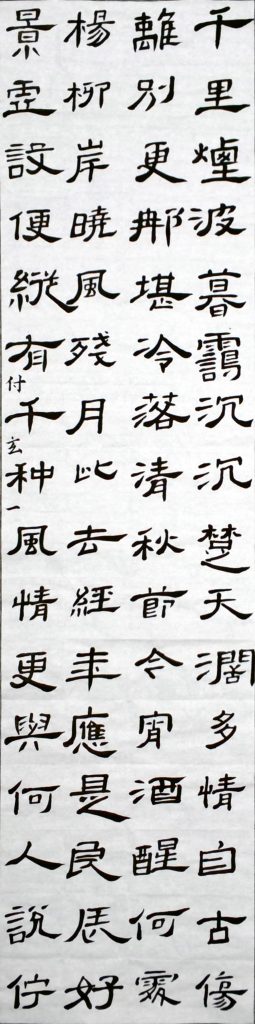 千里煙波暮靄沉沉楚天濶多情自古傷
離別更那堪冷落清秋節今宵酒醒何處
楊柳岸曉風殘月此去經年應是良辰好
景虛設便縱有千种風情更與何人說